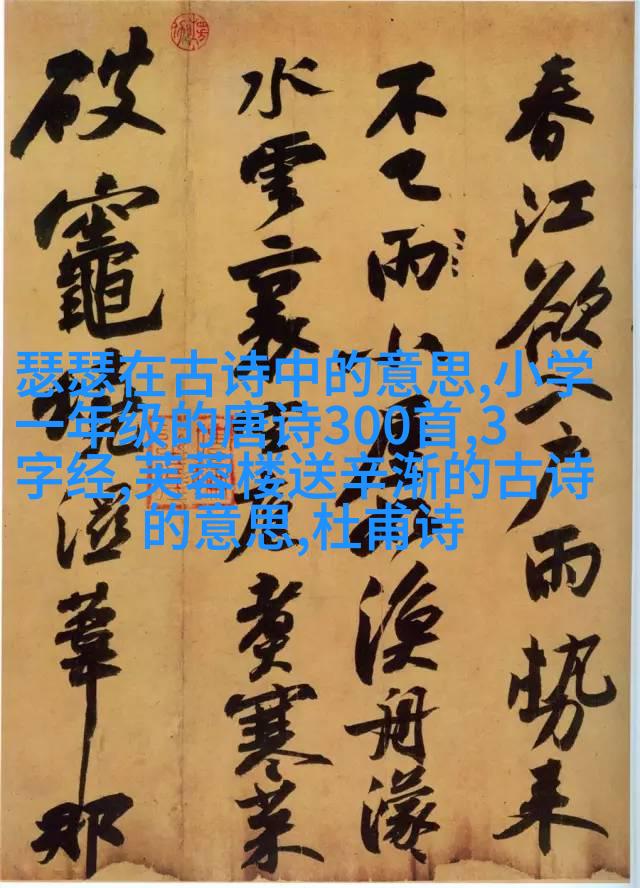 春江欲入户雨勢来
不已雨小屋漁舟濛
水雲裏空庖煮寒菜
破竈燒溼葦那
瑟瑟在古诗中的意思,小学
一年级的唐诗300首,3
字经,芙蓉楼送辛渐的古诗
的意思,杜甫诗